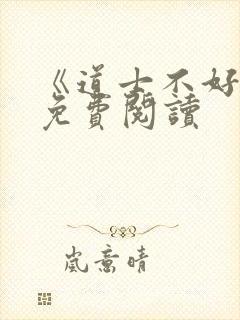 《道士不好
免費閱讀
嵐意晴